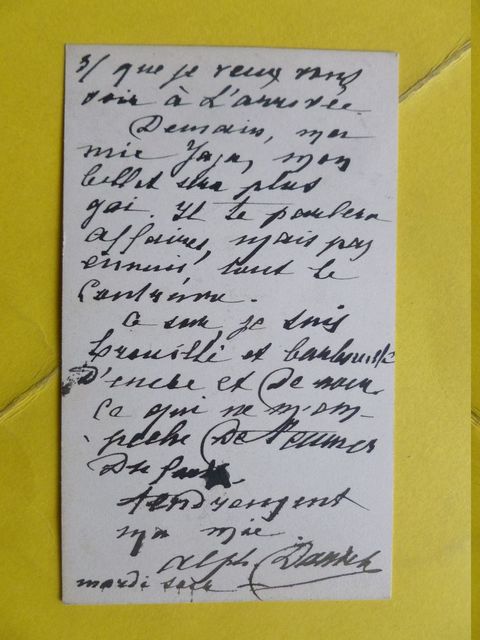 3/ que je veux vous
voir à L'arrivée.
Demain, ma
mie Jaja, mon
billet sera plus
gai. Il te parlera
affaires, mais pas
ennuis, tout le
Contraire.
Ce soir, je suis
brouillé et barbouillé
D'encre et De noir
Ce qui ne m'em-
pêche De
Du
tendrement
ma mie
alph. Daudet
mardi soir